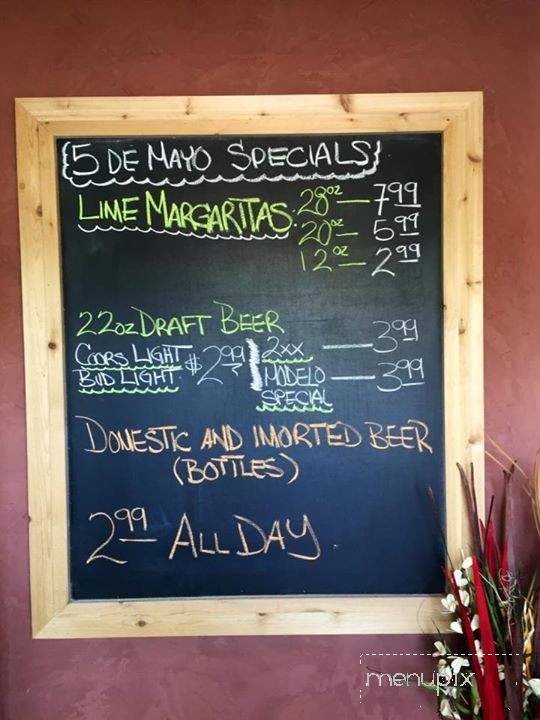 5 DE MAYO SPECIALS
LIME MARGARITAS: 28oz — 7.99
20oz — 5.99
12oz — 2.99
22oz DRAFT BEER
COORS LIGHT
BUD LIGHT
$2.99
2xx — 3.99
MODELO — 3.99
SPECIAL
DOMESTIC AND IMORTED BEER
(BOTTLES)
2.99 ALL DAY
menupix